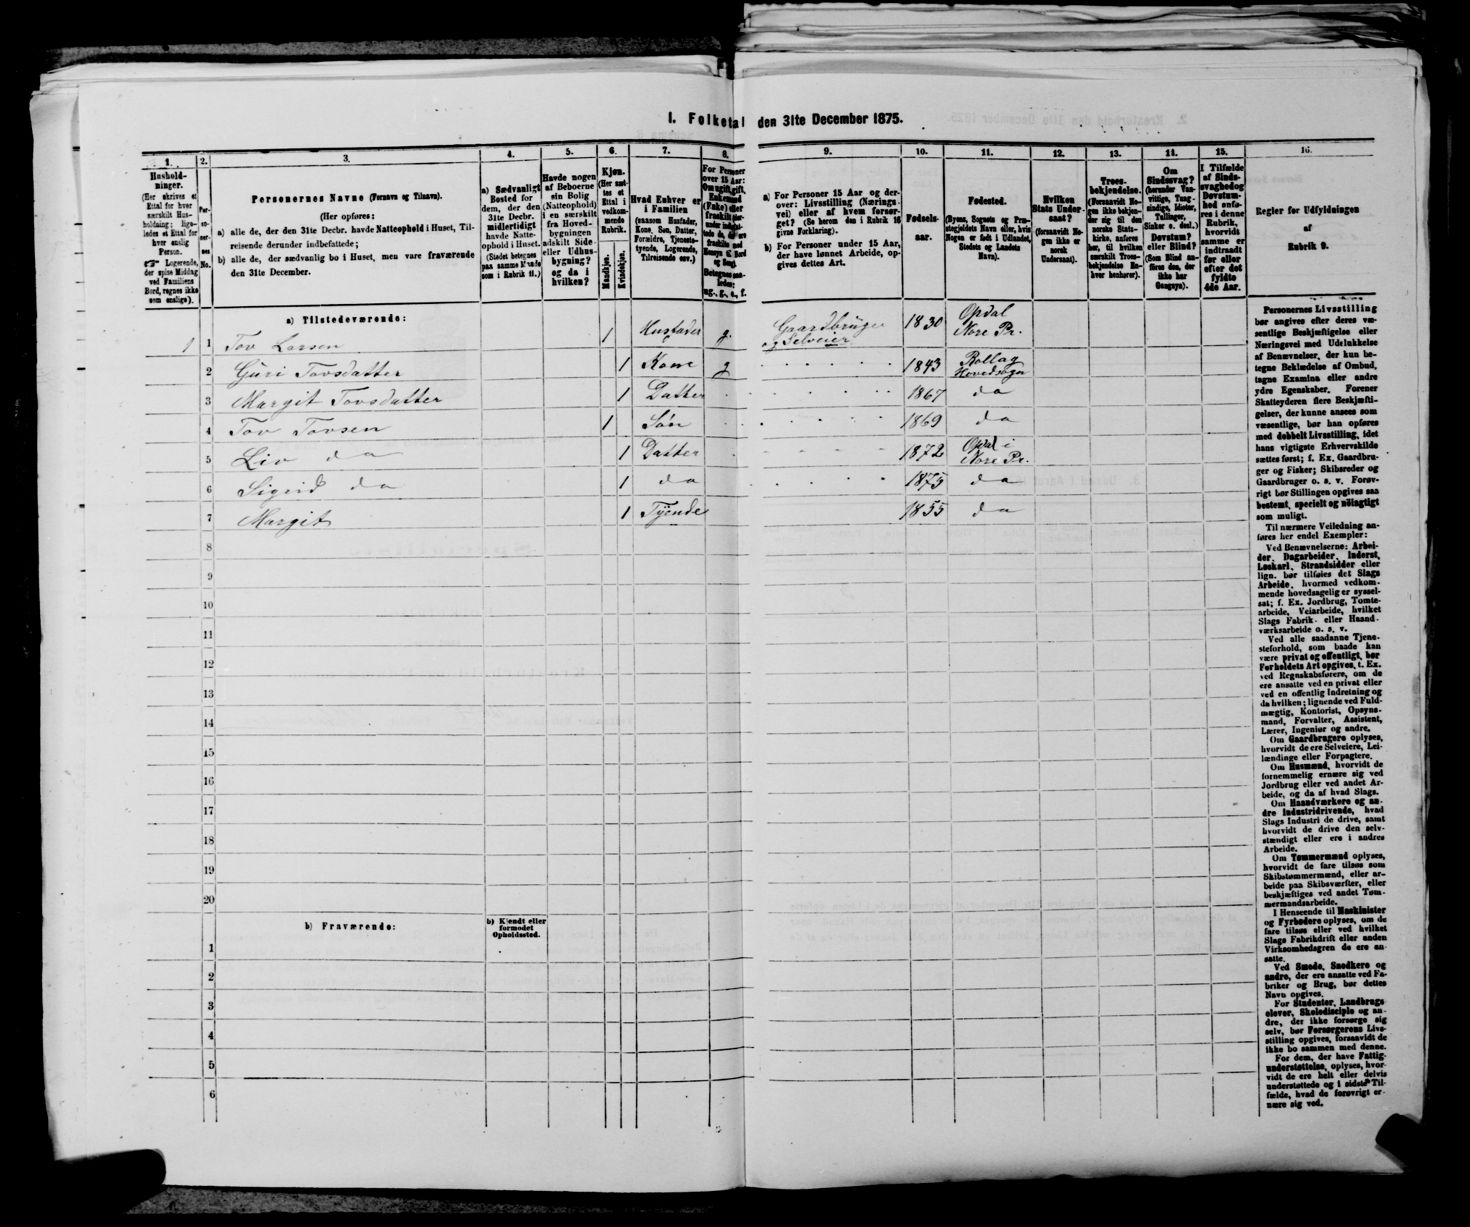 I. Folketal den 31te December 1875.
1.
2.
3.
4.
5.
6.
7.
8.
9.
10.
11.
12.
13.
14.
15.
16.
Hushold-
ninger.
(Her skrives et
Ettal for hver
særskilt Hus-
holdning; lige-
ledes et Ettal for
hver enslig
Person.
☞ Logerende,
der spise Middag
ved Familiens
Bord, regnes ikke
som enslige).
Per-
so-
ner-
nes
No.
Personernes Navne (Fornavn og Tilnavn).
(Her opføres:
a) alle de, der den 31te Decbr. havde Natteophold i Huset, Til-
reisende derunder indbefattede;
b) alle de, der sædvanlig bo i Huset, men vare fraværende
den 31te December.
a) Sædvanligt
Bosted for
dem, der den
31te Decbr.
midlertidigt
havde Natte-
ophold i Huset.
(Stedet betegnes
paa samme Maade
som i Rubrik 11.)
Havde nogen
af Beboerne
sin Bolig
(Natteophold)
i en særskilt
fra Hoved-
bygningen
adskilt Side-
eller Udhus-
bygning?
og da i
hvilken?
Kjøn.
(Her sæt-
tes et
Ettal i
vedkom-
mende
Rubrik.
Mandkjøn.
Kvindekjøn.
Hvad Enhver er
i Familien
(saasom Husfader,
Kone, Søn, Datter,
Forældre, Tjeneste-
tyende, Logerende,
Tilreisende osv.)
For Personer
over 15 Aar:
Om ugift, gift,
Enkemand
(Enke) eller
fraskilt
ug., g., e., f.
a) For Personer 15 Aar og der-
over: Livsstilling (Nærings-
vei) eller af hvem forsør-
get? (Se herom den i Rubrik 16
givne Forklaring).
b) For Personer under 15 Aar,
der have lønnet Arbeide, op-
gives dettes Art.
Fødsels-
aar.
Fødested.
(Byens, Sognets og Præ-
stegjeldets Navn eller, hvis
Nogen er født i Udlandet,
Stedets og Landets
Navn).
Hvilken
Stats Under-
saat?
(forsaavidt No-
gen ikke er
norsk
Undersaat).
Troes-
bekjendelse.
(Forsaavidt No-
gen ikke bekjen-
der sig til den
norske Stats-
kirke, anføres
her, til hvilken
særskilt Troes-
bekjendelse En-
hver henhører).
Om
Sindssvag?
(herunder Van-
vittige, Tung-
sindige, Idioter,
Tullinger,
Sinker o. desl.)
Døvstum?
eller Blind?
(Som Blind an-
føres den, der
ikke har
Gangsyn).
I Tilfælde
af Sinds-
svaghed og
Døvstum-
hed anfø-
res i denne
Rubrik,
hvorvidt
samme er
indtraadt
før eller
efter det
fyldte
4de Aar.
Regler for Udfyldningen
af
Rubrik 9.
a) Tilstedeværende:
1 1 Tov Larsen 1 Husfader g. Gaardbruger og Selveier 1830 Opdal Nore Pr.
2 Guri Tovsdatter 1 Kone g 1843 Rollag Hovedsogn
3 Margit Tovsdatter 1 Datter 1867 da
4 Tov Tovsen 1 Søn 1869 da
5 Liv da 1 Datter 1872 Opdal i Nore Pr.
6 Sigrid da 1 da 1875 da
7 Margit 1 Tyende 1855 da
8
9
10
11
12
13
14
15
16
17
18
19
20
b) Fraværende:
b) Kjendt eller
formodet
Opholdssted.
1
2
3
4
5
6
Personernes Livsstilling
bør angives efter deres væ-
sentlige Beskjæftigelse eller
Næringsvei med Udelukkelse
af Benævnelser, der kun be-
tegne Beklædelse af Ombud,
tagne Examina eller andre
ydre Egenskaber. Forener
Skatteyderen flere Beskjæfti-
gelser, der kunne ansees som
væsentlige, bør han opføres
med dobbelt Livsstilling, idet
hans vigtigste Erhvervskilde
sættes først; f. Ex. Gaardbru-
ger og Fisker; Skibsreder og
Gaardbruger o. s. v. Forøv-
rigt bør Stillingen opgives saa
bestemt, specielt og nöiagtigt
som muligt.
Til nærmere Veiledning an-
føres her endel Exempler:
Ved Benævnelserne: Arbei-
der, Dagarbeider, Inderst,
Løskarl, Strandsidder eller
lign. bør tilføies det Slags
Arbeide, hvormed vedkom-
mende hovedsagelig er syssel-
sat; f. Ex. Jordbrug, Tomte-
arbeide, Veiarbeide, hvilket
Slags Fabrik- eller Haand-
værksarbeide o. s. v.
Ved alle saadanne Tjene-
steforhold, som baade kan
være privat og offentligt, bør
Forholdets Art opgives, t. Ex.
ved Regnskabsførere, om de
ere ansatte ved en privat eller
ved en offentlig Indretning og
da hvilken; lignende ved Fuld-
mægtig, Kontorist, Opsyns-
mand, Forvalter, Assistent,
Lærer, Ingeniør og andre.
Om Gaardbrugere oplyses,
hvorvidt de ere Selveiere, Lei-
lændinge eller Forpagtere.
Om Husmænd, hvorvidt de
fornemmelig ernære sig ved
Jordbrug eller ved andet Ar-
beide, og da af hvad Slags.
Om Haandværkere og an-
dre Industridrivende, hvad
Slags Industri de drive, samt
hvorvidt de drive den selv-
stændigt eller ere i andres
Arbeide.
Om Tømmermænd oplyses,
hvorvidt de fare tilsøs som
Skibstømmermænd, eller ar-
beide paa Skibsværfter, eller
beskjæftiges ved andet Tøm-
mermandsarbeide.
I Henseende til Maskinister
og Fyrbødere oplyses, om de
fare tilsøs eller ved hvilket
Slags Fabrikdrift eller anden
Virksomhedsgren de ere an-
satte.
Ved Smede, Snedkere og
andre, der ere ansatte ved Fa-
briker og Brug, bør dettes
Navn opgives.
For Studenter, Landbrugs-
elever, Skoledisciple og an-
dre, der ikke forsørge sig
selv, bør Forsørgerens Livs-
stilling opgives, forsaavidt de
ikke bo sammen med denne.
For dem, der have Fattig-
understøttelse, oplyses, hvor-
vidt de ere helt eller delvis
understøttede og i sidste Til-
fælde, hvad de forøvrigt er-
nære sig ved.